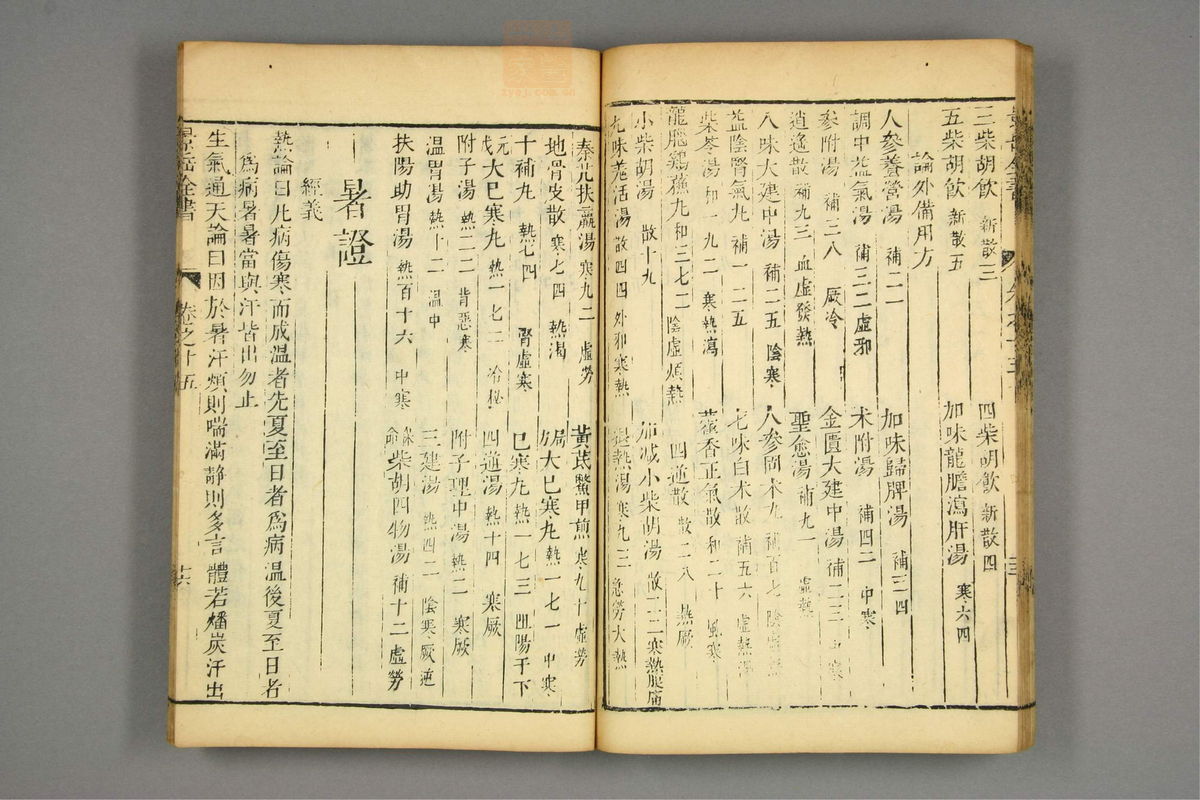 三柴胡飲 新散三 四柴胡飲 新散四
五柴胡飲 新散五 加味龍膽瀉肝湯 寒六四
論外備用方
人參養營湯 補二一 加味歸脾湯 補三一四
調中益氣湯 補三二 虛邪 术附湯 補四二 中寒
參附湯 補三八 厥冷 金匱大建中湯 補二三 中寒
逍遙散 補九三 血虛發熱 聖愈湯 補九一 虛熱
八味大建中湯 補二五 陰寒 人參固本丸 補百七
益陰腎氣丸 補一二五 七味白术散 補五六 虛熱
柴苓湯 和一九二 寒熱瀉 藿香正氣散 和二十 風寒
龍腦鷄蘇丸 和三七二 陰虛煩熱 四逆散 散二八 熱厥
小柴胡湯 散十九 加减小柴胡湯 散二二 寒熱腹痛
九味羌活湯 散四四 外邪寒熱 退熱湯 寒九三 急勞大熱
秦艽扶羸湯 寒九二 虛勞 黃芪鱉甲煎 寒九十 虛勞
地骨皮散 寒七四 熱渴 局方大已寒丸 熱一七一 中寒
十補丸 熱七四 腎虛寒 已寒丸 熱一七三 阻陽于下
元戎大已寒丸 熱一七二 冷秘 四逆湯 熱十四 寒厥
附子湯 熱二二 背惡寒 附子理中湯 熱二 寒厥
溫胃湯 熱十二 溫中 三建湯 熱四二 陰寒厥逆
扶陽助胃湯 熱百十六 中寒 保命柴胡四物湯 補十二 虛勞
暑證
經義
熱論曰凡病傷寒而成溫者先夏至日者為病溫後夏至日者
為病暑暑當與汗皆出勿止
生氣通天論曰因於暑汗煩則喘滿靜則多言體若燔炭汗出
景岳全書 卷之十五 十六
zyoj.com.cn